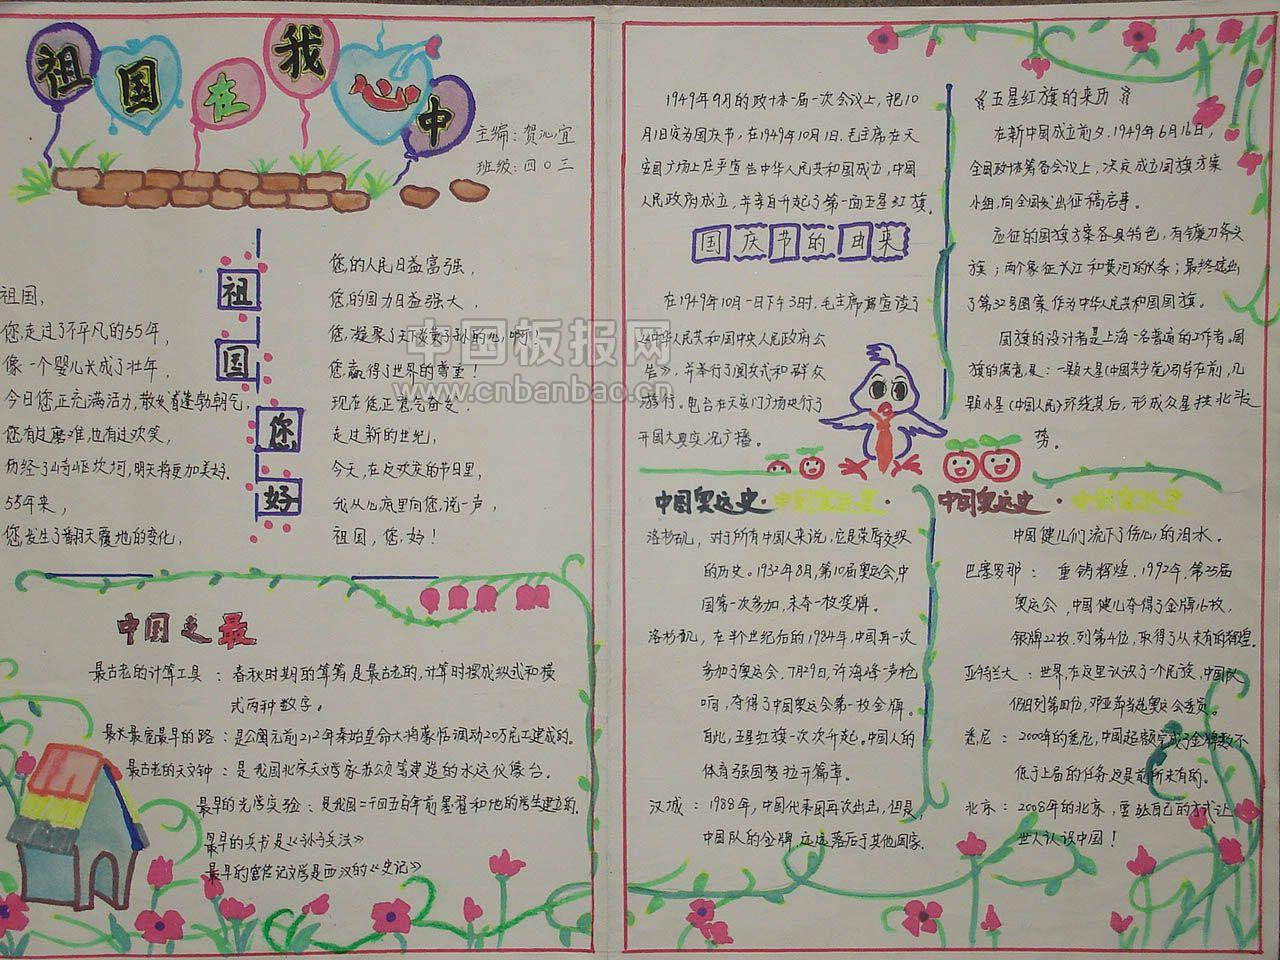 祖国在我心中
主编:贺沁宜
班级:四〇三
祖国您好
祖国,
您走过了不平凡的55年,
像一个婴儿长成了壮年,
今日您正充满活力,散发着蓬勃朝气,
您有过磨难,也有过欢笑,
历经了崎岖坎坷,明天将更加美好.
55年来,
您发生了翻天覆地的变化,
您的人民日益富强,
您的国力日益强大,
您,凝聚了天下炎黄子孙的心,啊!
您赢得了世界的尊重!
现在您正意气奋发,
走过新的世纪,
今天,在这欢定的节日里,
我从心底里向您,说一声,
祖国,您,好!
中国板报网
www.cnbanbao.cn
中国之最
最古老的计算工具:春秋时期的算筹是最古老的,计算时摆成纵式和横
式两种数字。
最长最宽最早的路:是公园元前212年秦始皇命大将蒙恬调动20万民工建成的.
最古老的天文钟:是我国北宋天文学家苏公颂等建造的水运仪像台。
最早的光学实验:是我国二千四五百年前墨翟和他的学生建立的.
最早的兵书是《孙子兵法》
最早的宫传记文学是西汉的《史记》
1949年9月的政协第一届一次会议上,把10
月1日定为国庆节,在1949年10月1日,毛主席在天
安门广场上庄严宣告中华人民共和国成立,中国
人民政府成立,并亲自升起了第一面五星红旗.
国庆节的由来
在1949年10月一日下午3时,毛主席宣读了
《中华人民共和国中央人民政府公
告》,并举行了阅兵式和群众
游行.电台在天安门广场进行了
开国大典实况广播。
《五星红旗的来历》
在新中国成立前夕,1949年6月16日,
全国政协筹备会议上,决定成立国旗方案
小组,向全国发出征稿启事。
应征的国旗方案各具特色,有镰刀斧头
旗;两个象征长江和黄河的长条;最终选出
了第32号图案作为中华人民共和国国旗。
国旗的设计者是上海一名普通的工作者.国
旗的寓意是:一颗大星(中国共产党)领导在前,几
颗小星(中国人民)环绕其后,形成众星拱北斗之
势。
中国奥运史·中国奥运史·
洛杉矶,对于所有中国人来说,它是荣辱交织
的历史。1932年8月,第10届奥运会,中
国第一次参加,未夺一枚奖牌。
洛杉矶,在半个世纪后的1984年,中国再一次
参加了奥运会,7月29日,许海峰一声枪
响,夺得了中国奥运会第一枚金牌。
自此,五星红旗一次次升起。中国人的
体育强国梦拉开篇章。
汉城:1988年,中国代表团再次出击,但是,
中国队的金牌,远远落后于其他国家.
中国奥运史·中国奥运史
中国健儿们流下了伤心的泪水。
巴塞罗那:重铸辉煌.1992年,第25届
奥运会,中国健儿夺得了金牌16枚,
银牌22枚.列第4位,取得了从未有的辉煌.
亚特兰大:世界,在这里认识了个民族,中国队
仍旧列第四位,邓亚萍当选奥运会委员。
悉尼:2000年的悉尼,中国超额完成了金牌数不
低于上届的任务,这是前所未有的。
北京:2008年的北京,要以自己的方式让
世人认识中国!